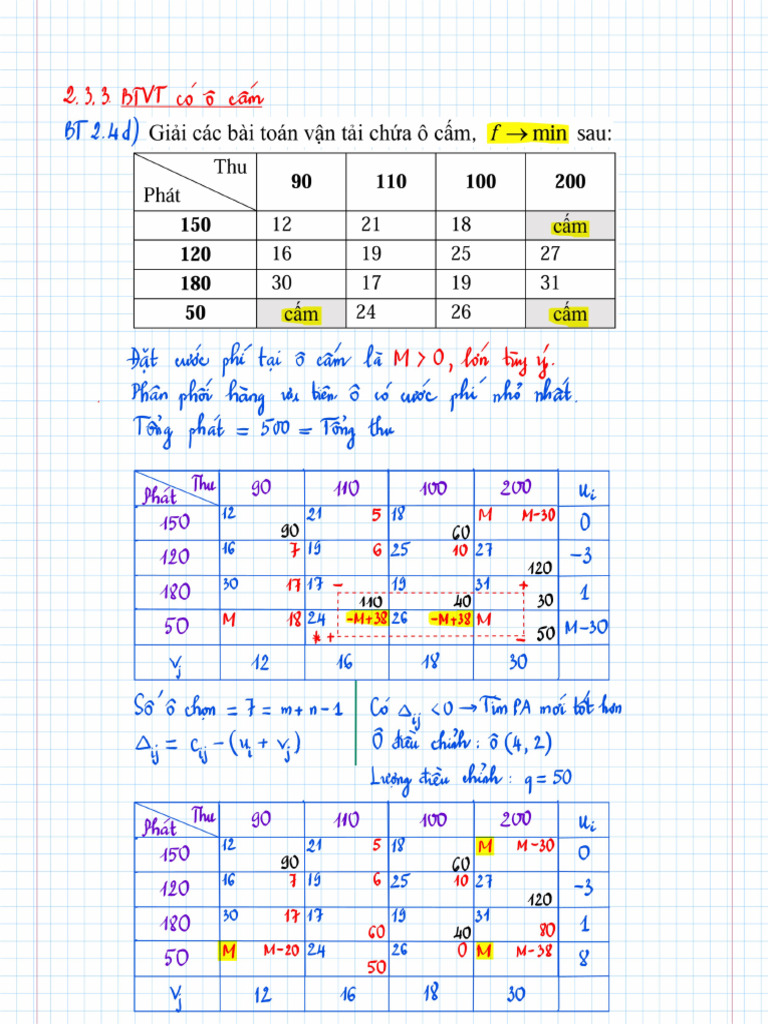 2.3.3. BTVT có ô cấm
BT 2.4d) Giải các bài toán vận tải chứa ô cấm, f → min sau:
Thu
Phát 90 110 100 200
150 12 21 18 cấm
120 16 19 25 27
180 30 17 19 31
50 cấm 24 26 cấm
Đặt cước phí tại ô cấm là M > 0, lớn tùy ý.
Phân phối hàng ưu tiên ô có cước phí nhỏ nhất.
Tổng phát = 500 = Tổng thu
Thu
Phát 90 110 100 200 ui
150 12 90 21 5 18 60 M M-30 0
120 16 7 19 6 25 10 27 120 -3
180 30 17 17 - 110 19 40 31 + 30 1
50 M 18 24 -M+38 * + 26 -M+38 M - 50 M-30
vj 12 16 18 30
Số ô chọn = 7 = m + n - 1
Δij = cij - (ui + vj)
Có Δij < 0 → Tìm PA mới tốt hơn
Ô điều chỉnh: ô (4, 2)
Lượng điều chỉnh: q = 50
Thu
Phát 90 110 100 200 ui
150 12 90 21 5 18 60 M M-30 0
120 16 7 19 6 25 10 27 120 -3
180 30 17 17 60 19 40 31 80 1
50 M M-20 24 50 26 0 M M-38 8
vj 12 16 18 30